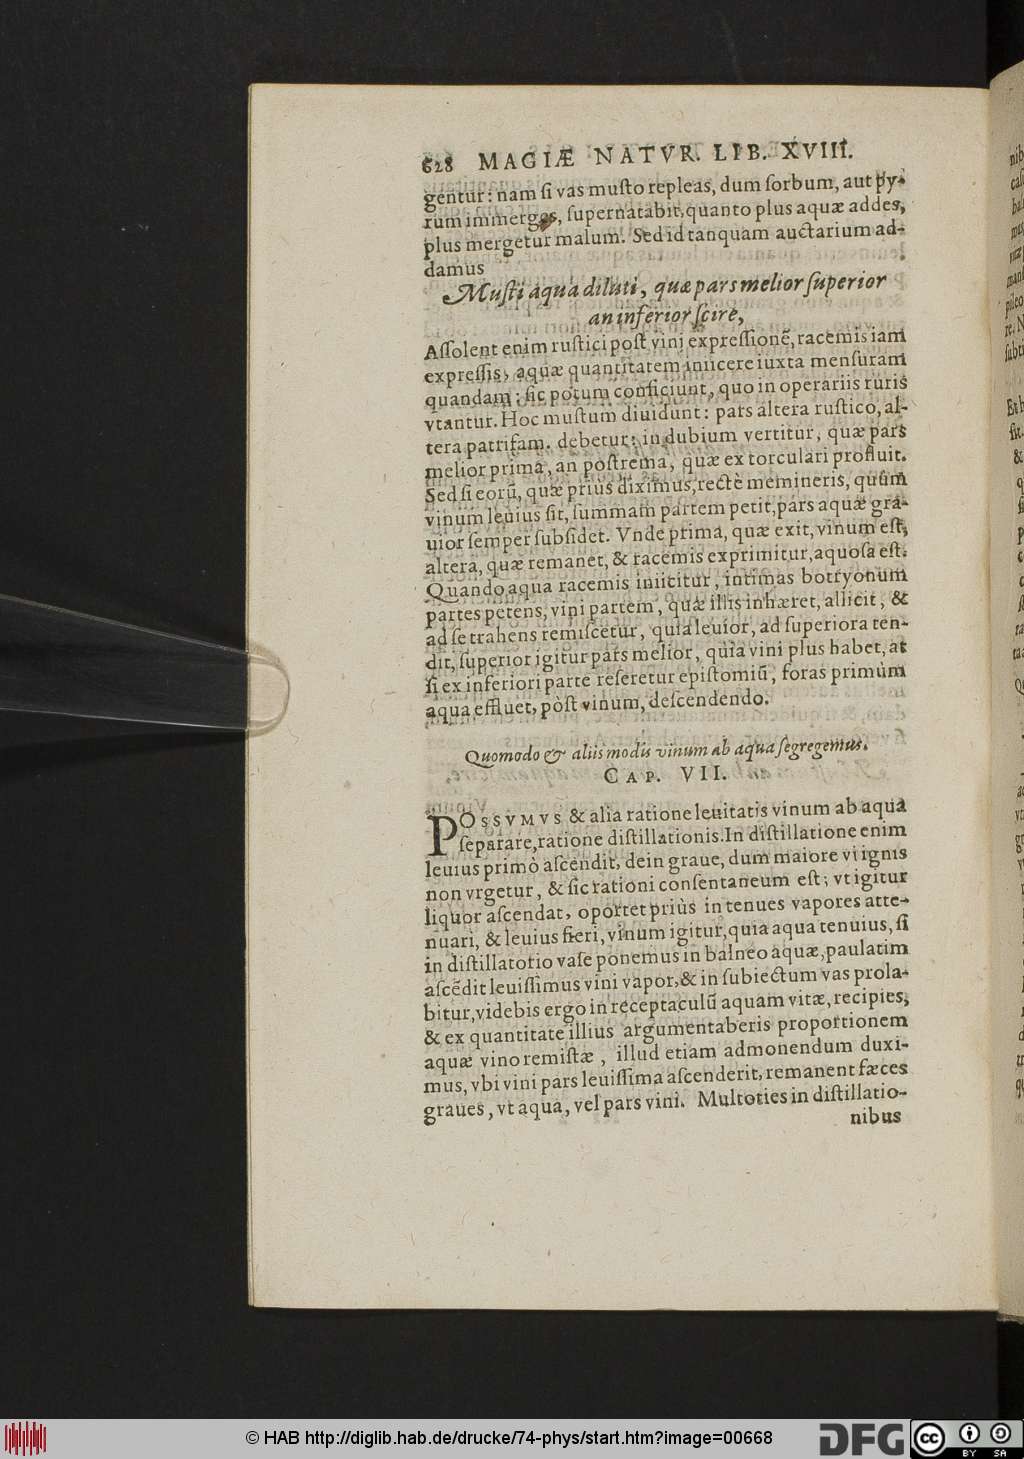 628 MAGIÆ NATVR. LIB. XVIII.
gentur: nam si vas musto repleas, dum sorbum, aut py-
rum immerges, supernatabit, quanto plus aquæ addes,
plus mergetur malum. Sed id tanquam auctarium ad-
damus
Musti aqua diluti, quæ pars melior superior
an inferior scire,
Assolent enim rustici post vini expressionē, racemis iam
expressis, aquæ quantitatem iniicere iuxta mensuram
quandam; sic potum conficiunt, quo in operariis ruris
vtantur. Hoc mustum diuidunt: pars altera rustico, al-
tera patrifam. debetur: in dubium vertitur, quæ pars
melior prima, an postrema, quæ ex torculari profluit.
Sed si eorū, quæ priùs diximus, rectè memineris, quùm
vinum leuius sit, summam partem petit, pars aquæ gra-
uior semper subsidet. Vnde prima, quæ exit, vinum est,
altera, quæ remanet, & racemis exprimitur, aquosa est.
Quando aqua racemis iniicitur, intimas botryonum
partes petens, vini partem, quæ illis inhæret, allicit, &
ad se trahens remiscetur, quia leuior, ad superiora ten-
dit, superior igitur pars melior, quia vini plus habet, at
si ex inferiori parte referetur epistomiū, foras primùm
aqua effluet, pòst vinum, descendendo.
Quomodo & aliis modis vinum ab aqua segregemus.
CAP. VII.
POSSVMVS & alia ratione leuitatis vinum ab aqua
separare, ratione distillationis. In distillatione enim
leuius primò ascendit, dein graue, dum maiore vi ignis
non vrgetur, & sic rationi consentaneum est; vt igitur
liquor ascendat, oportet priùs in tenues vapores atte-
nuari, & leuius fieri, vinum igitur, quia aqua tenuius, si
in distillatorio vase ponemus in balneo aquæ, paulatim
ascēdit leuissimus vini vapor, & in subiectum vas prola-
bitur, videbis ergo in receptaculū aquam vitæ, recipies,
& ex quantitate illius argumentaberis proportionem
aquæ vino remistæ, illud etiam admonendum duxi-
mus, vbi vini pars leuissima ascenderit, remanent fæces
graues, vt aqua, vel pars vini. Multoties in distillatio-
nibus
© HAB http://diglib.hab.de/drucke/74-phys/start.htm?image=00668
DFG
cc BY SA